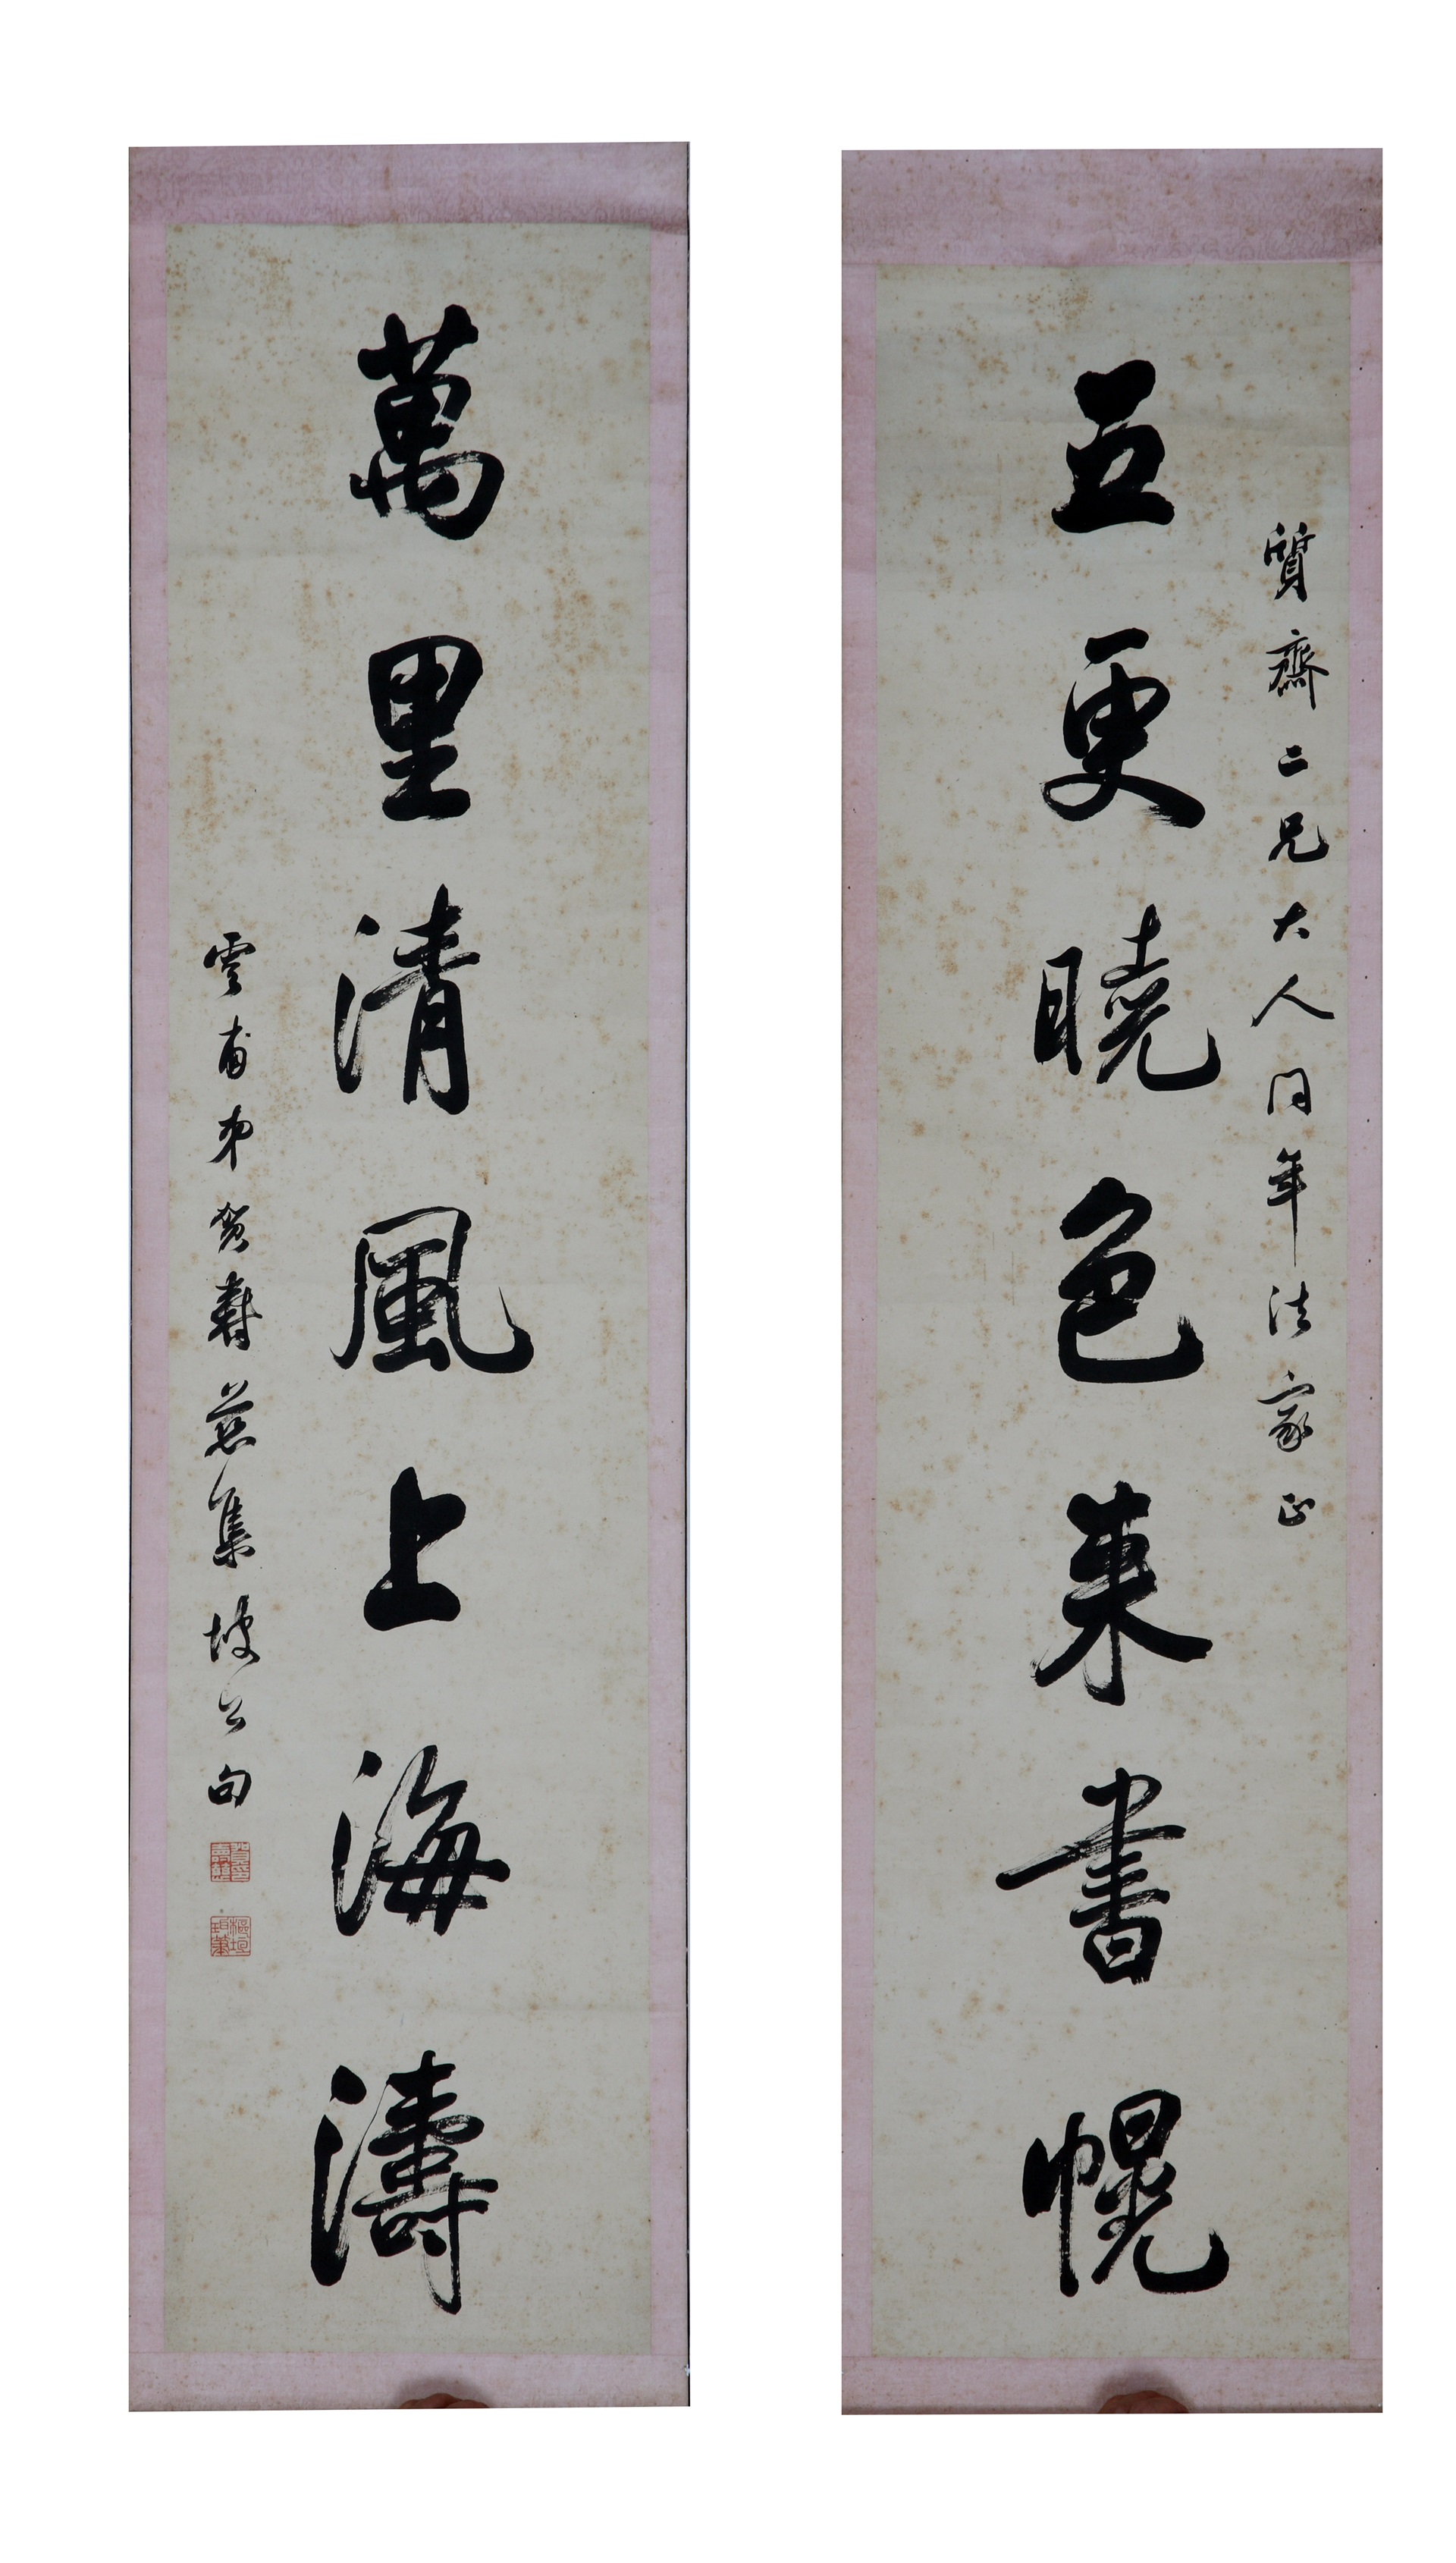 質齋二兄大人同年法家正
五更曉色来書幌
萬里清風上海濤
雲甫弟賀壽慈集坡公句